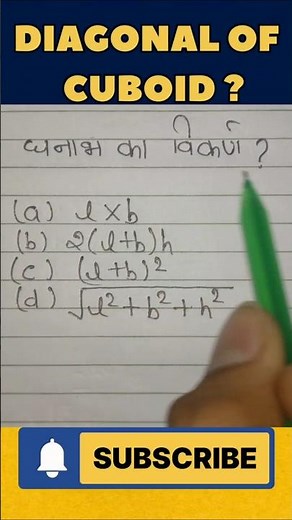 DIAGONAL OF
CUBOID ?
घनाभ का विकर्ण ?
(a) l×b
(b) 2(l+b)h
(c) (l+b)²
(d) √l²+b²+h²
SUBSCRIBE